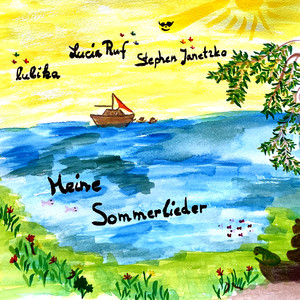 Lucia Ruf
Stephen Janetzko
lulika
Meine
Sommerlieder